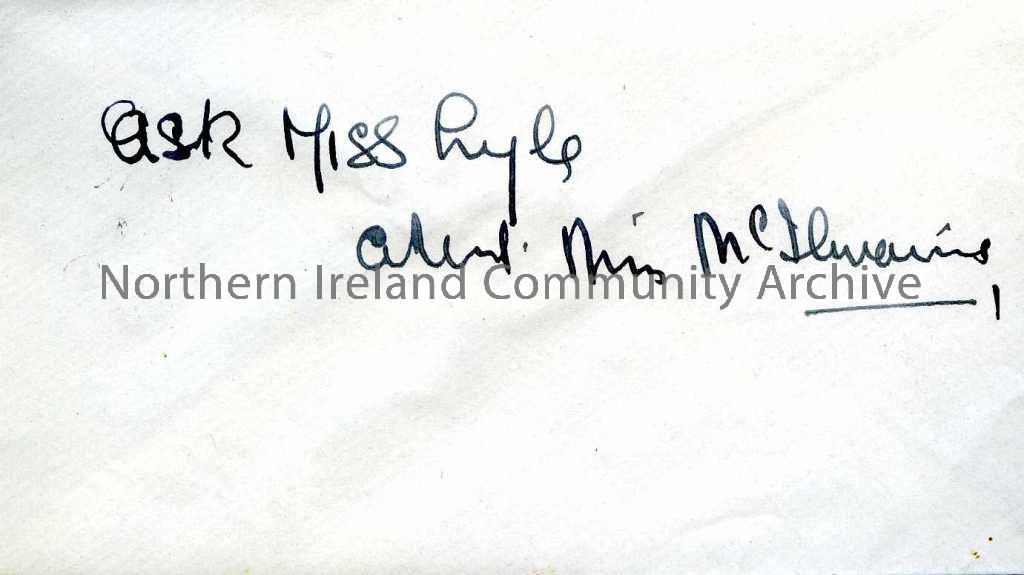 ask Miss Lyle
about Miss McIlwaine
Northern Ireland Community Archive